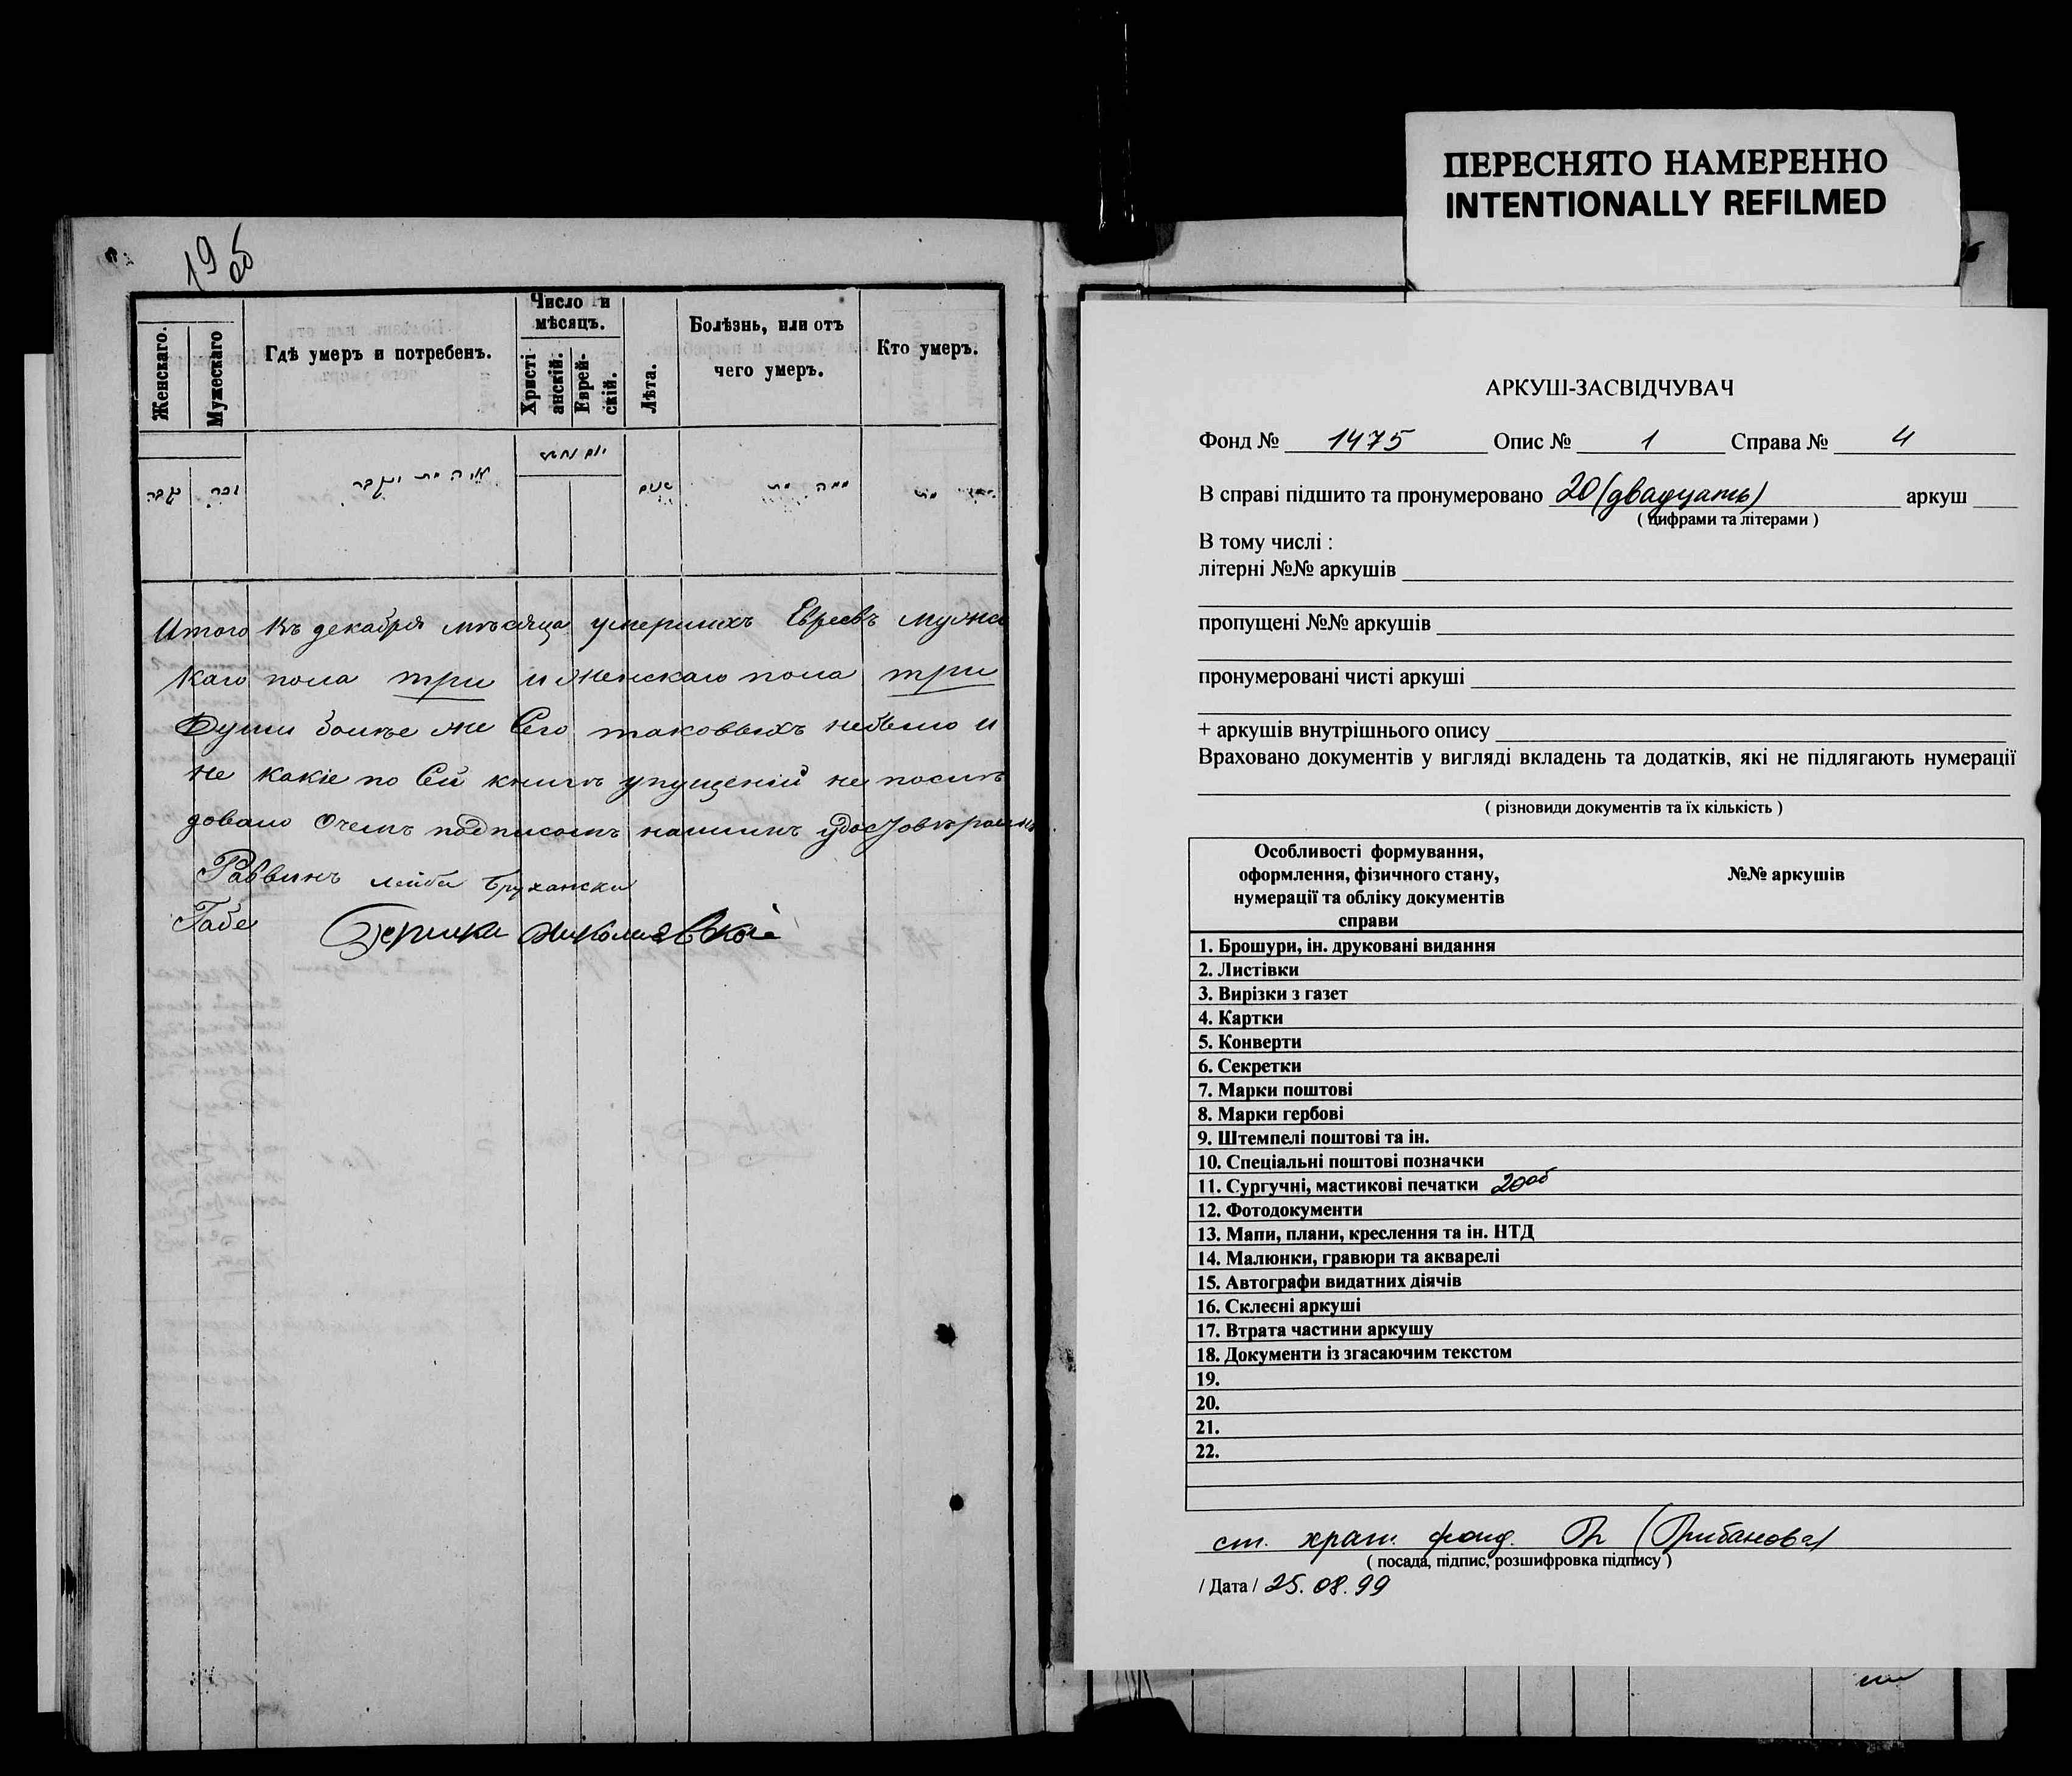 19 об
Женскаго.
Мужескаго
Гдѣ умеръ и потребенъ.
Число и
мѣсяцъ.
Христі-
анскій.
Еврей-
скій.
Лѣта.
Болѣзнь, или отъ
чего умеръ.
Кто умеръ.
Итого въ декабря мѣсяца умершихъ Евреевъ мужес
каго пола три и женскаго пола три
Души болѣе же Сего таковыхъ небыло и
не какіе по Сей книгѣ упущеній не послѣ
довало Очемъ подписомъ нашимъ удостовѣряемъ
Раввинъ Лейба
Габе
ПЕРЕСНЯТО НАМЕРЕННО
INTENTIONALLY REFILMED
АРКУШ-ЗАСВІДЧУВАЧ
Фонд № 1475 Опис № 1 Справа № 4
В справі підшито та пронумеровано 20 (двадцать) аркуш
( цифрами та літерами )
В тому числі :
літерні №№ аркушів
пропущені №№ аркушів
пронумеровані чисті аркуші
+ аркушів внутрішнього опису
Враховано документів у вигляді вкладень та додатків, які не підлягають нумерації
( різновиди документів та їх кількість )
Особливості формування,
оформлення, фізичного стану,
нумерації та обліку документів
справи
№№ аркушів
1. Брошури, ін. друковані видання
2. Листівки
3. Вирізки з газет
4. Картки
5. Конверти
6. Секретки
7. Марки поштові
8. Марки гербові
9. Штемпелі поштові та ін.
10. Спеціальні поштові позначки
11. Сургучні, мастикові печатки 20об
12. Фотодокументи
13. Мапи, плани, креслення та ін. НТД
14. Малюнки, гравюри та акварелі
15. Автографи видатних діячів
16. Склеєні аркуші
17. Втрата частини аркушу
18. Документи із згасаючим текстом
19.
20.
21.
22.
ст. хран. фонд. (Грибанова)
( посада, підпис, розшифровка підпису )
/ Дата / 25.08.99